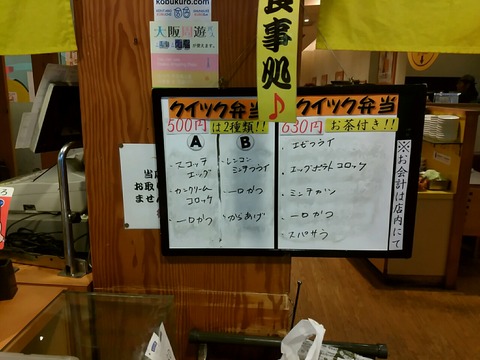 kobukuro.com
大阪周遊
が使えます。
食事処♪
クイック弁当
500円は2種類!!
A
・スコッチエッグ
・カニクリームコロッケ
・一口かつ
B
・レンコンミンチフライ
・一口かつ
・からあげ
クイック弁当
630円お茶付き!!
・エビフライ
・エッグポテトコロッケ
・ミンチカツ
・一口かつ
・スパサラ
※お会計は店内にて
当店
お取り
ません